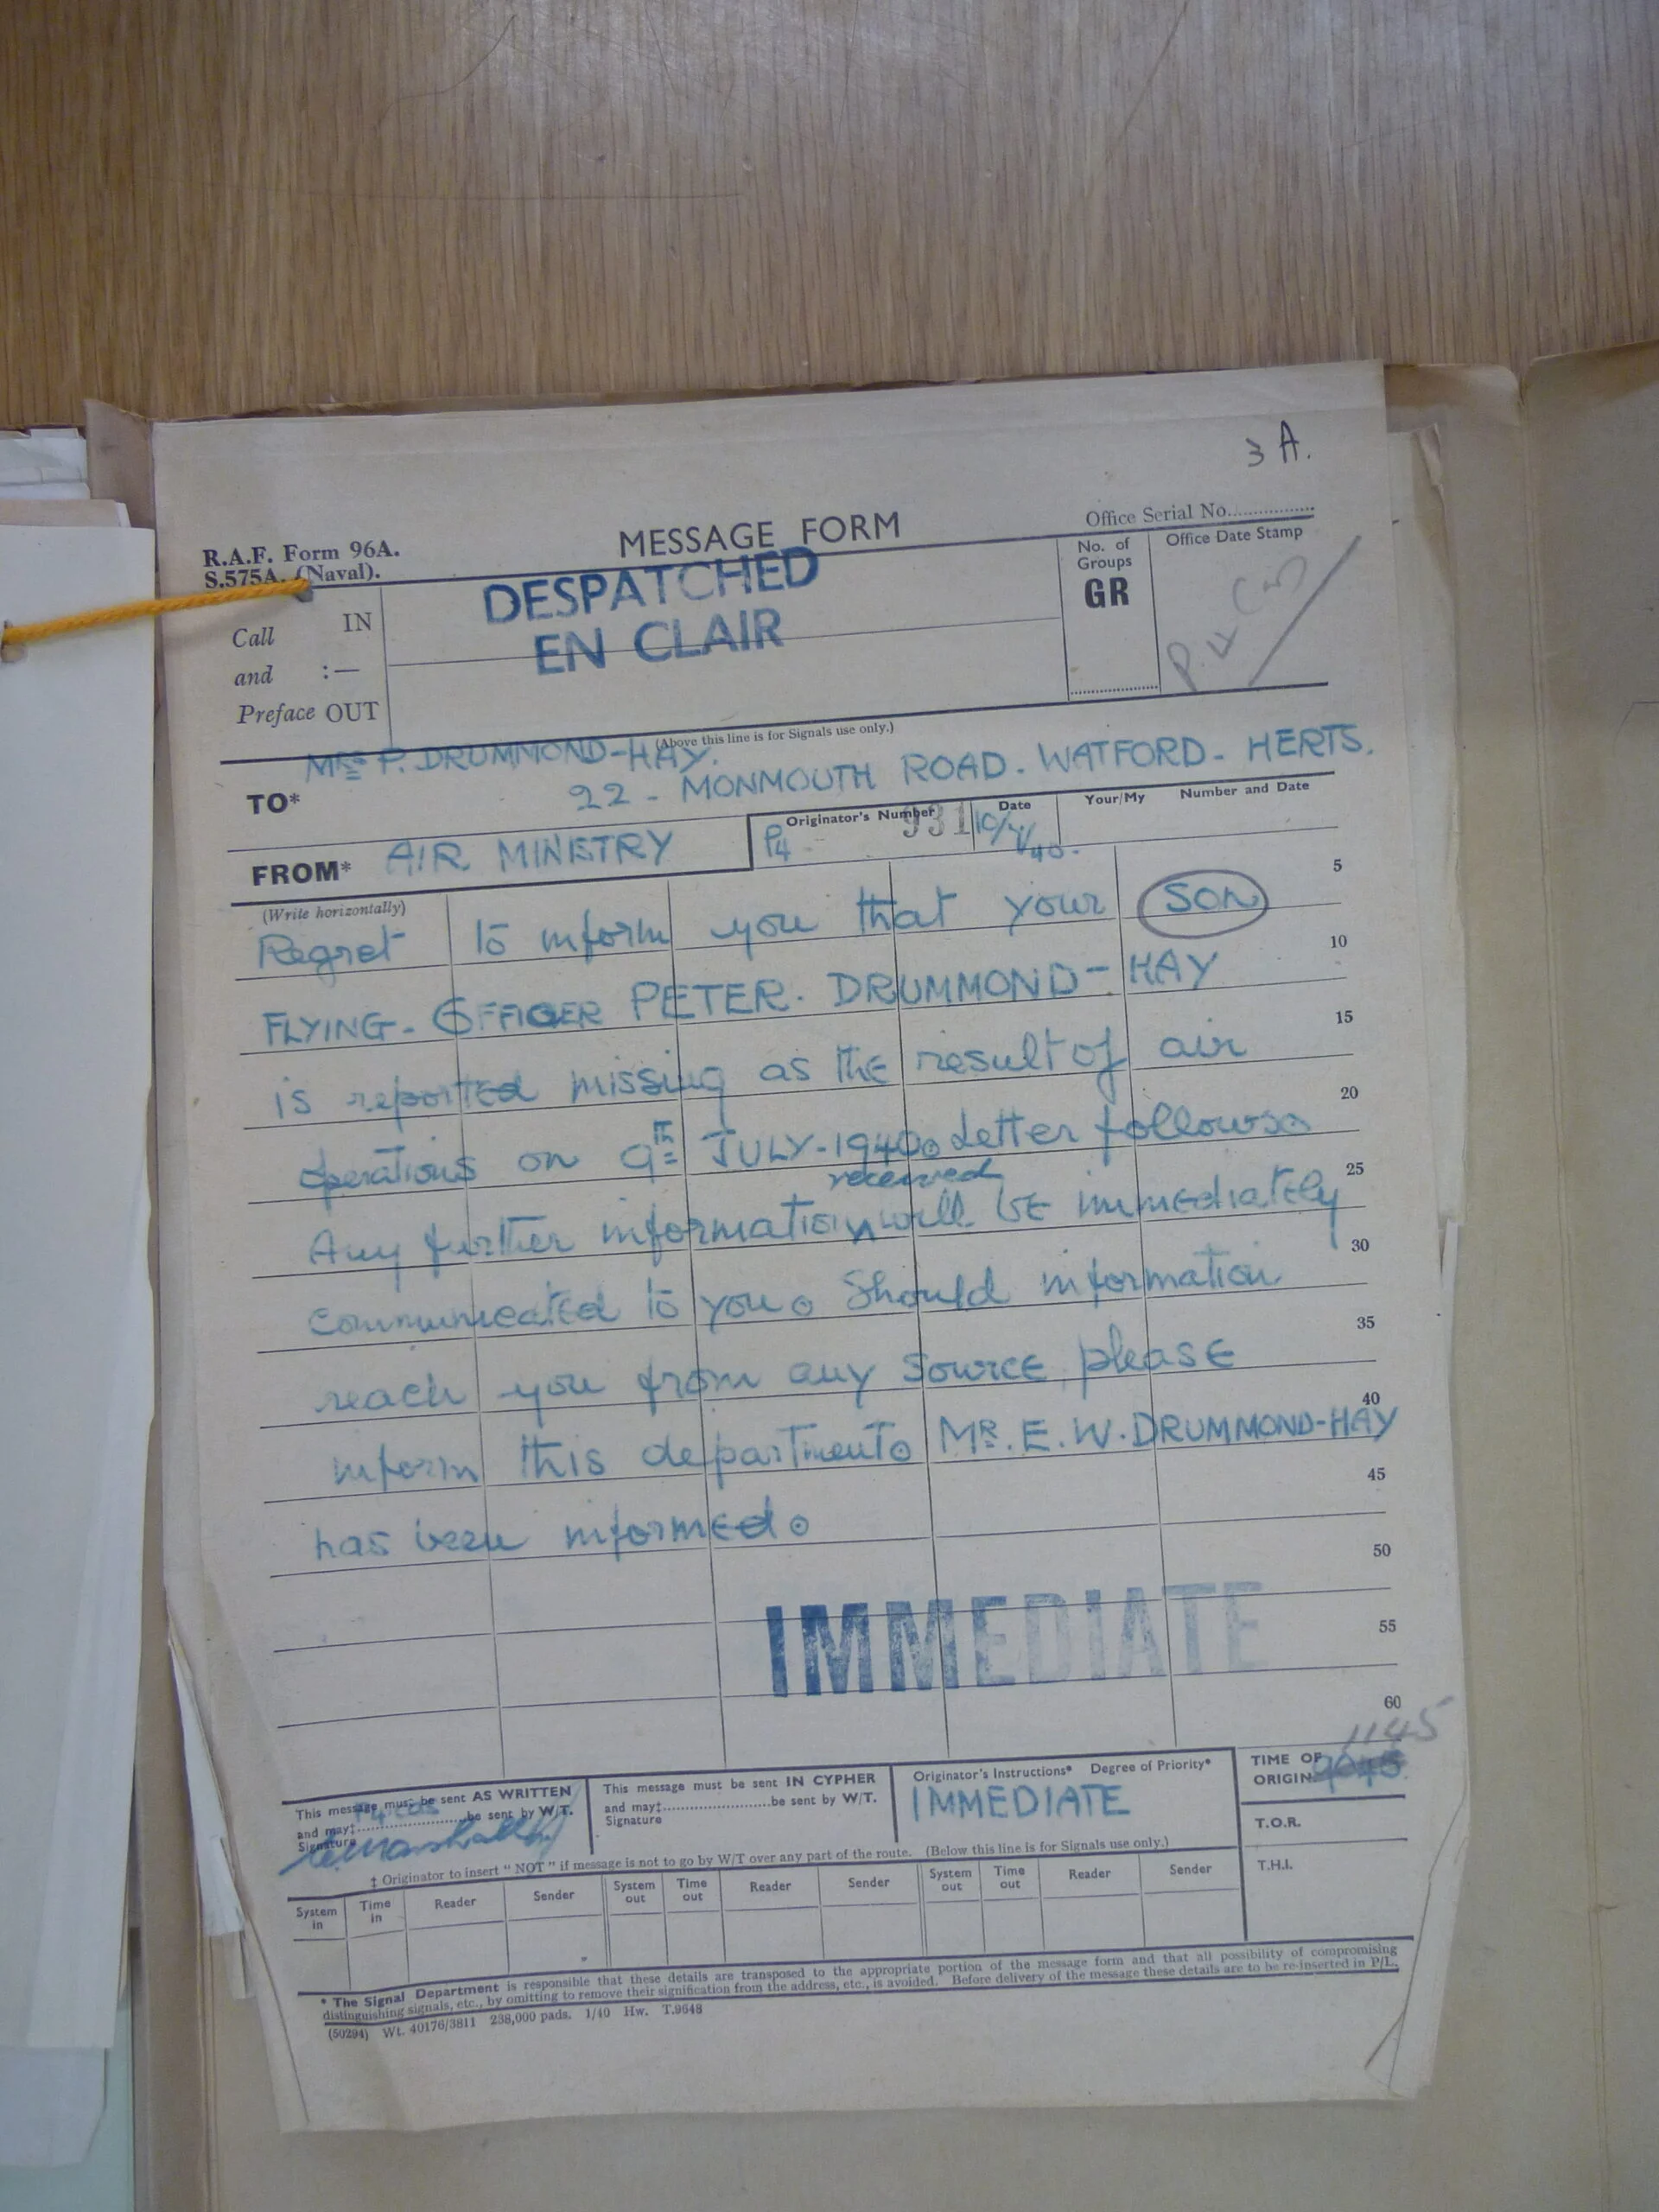 3 A.
R.A.F. Form 96A.
S.575A. (Naval).
MESSAGE FORM
Office Serial No.
Call
and :—
Preface
IN
OUT
DESPATCHED
EN CLAIR
No. of
Groups
GR
Office Date Stamp
(Above this line is for Signals use only.)
TO*
MRS P. DRUMMOND-HAY.
22 - MONMOUTH ROAD - WATFORD - HERTS.
FROM* AIR MINISTRY
Originator's Number
P4 931
Date
10/7/40.
Your/My Number and Date
(Write horizontally)
Regret to inform you that your son 5
FLYING - OFFICER PETER. DRUMMOND - HAY 10
is reported missing as the result of air 15
operations on 9th JULY - 1940. Letter follows. 20
received
Any further information will be immediately 25
communicated to you. Should information 30
reach you from any source please 35
inform this department. MR. E. W. DRUMMOND-HAY 40
has been informed. 45
50
IMMEDIATE
55
60
1145
This message must be sent AS WRITTEN
and may‡ P4 Cas be sent by W/T.
Signature
This message must be sent IN CYPHER
and may‡ be sent by W/T.
Signature
Originator's Instructions* Degree of Priority*
IMMEDIATE
TIME OF
ORIGIN
T.O.R.
T.H.I.
‡ Originator to insert "NOT" if message is not to go by W/T over any part of the route. (Below this line is for Signals use only.)
System in
Time in
Reader
Sender
System out
Time out
Reader
Sender
System out
Time out
Reader
Sender
* The Signal Department is responsible that these details are transposed to the appropriate portion of the message form and that all possibility of compromising
distinguishing signals, etc., by omitting to remove their signification from the address, etc., is avoided. Before delivery of the message these details are to be re-inserted in P/L.
(50294) Wt. 40176/3811 238,000 pads. 1/40 Hw. T.9648